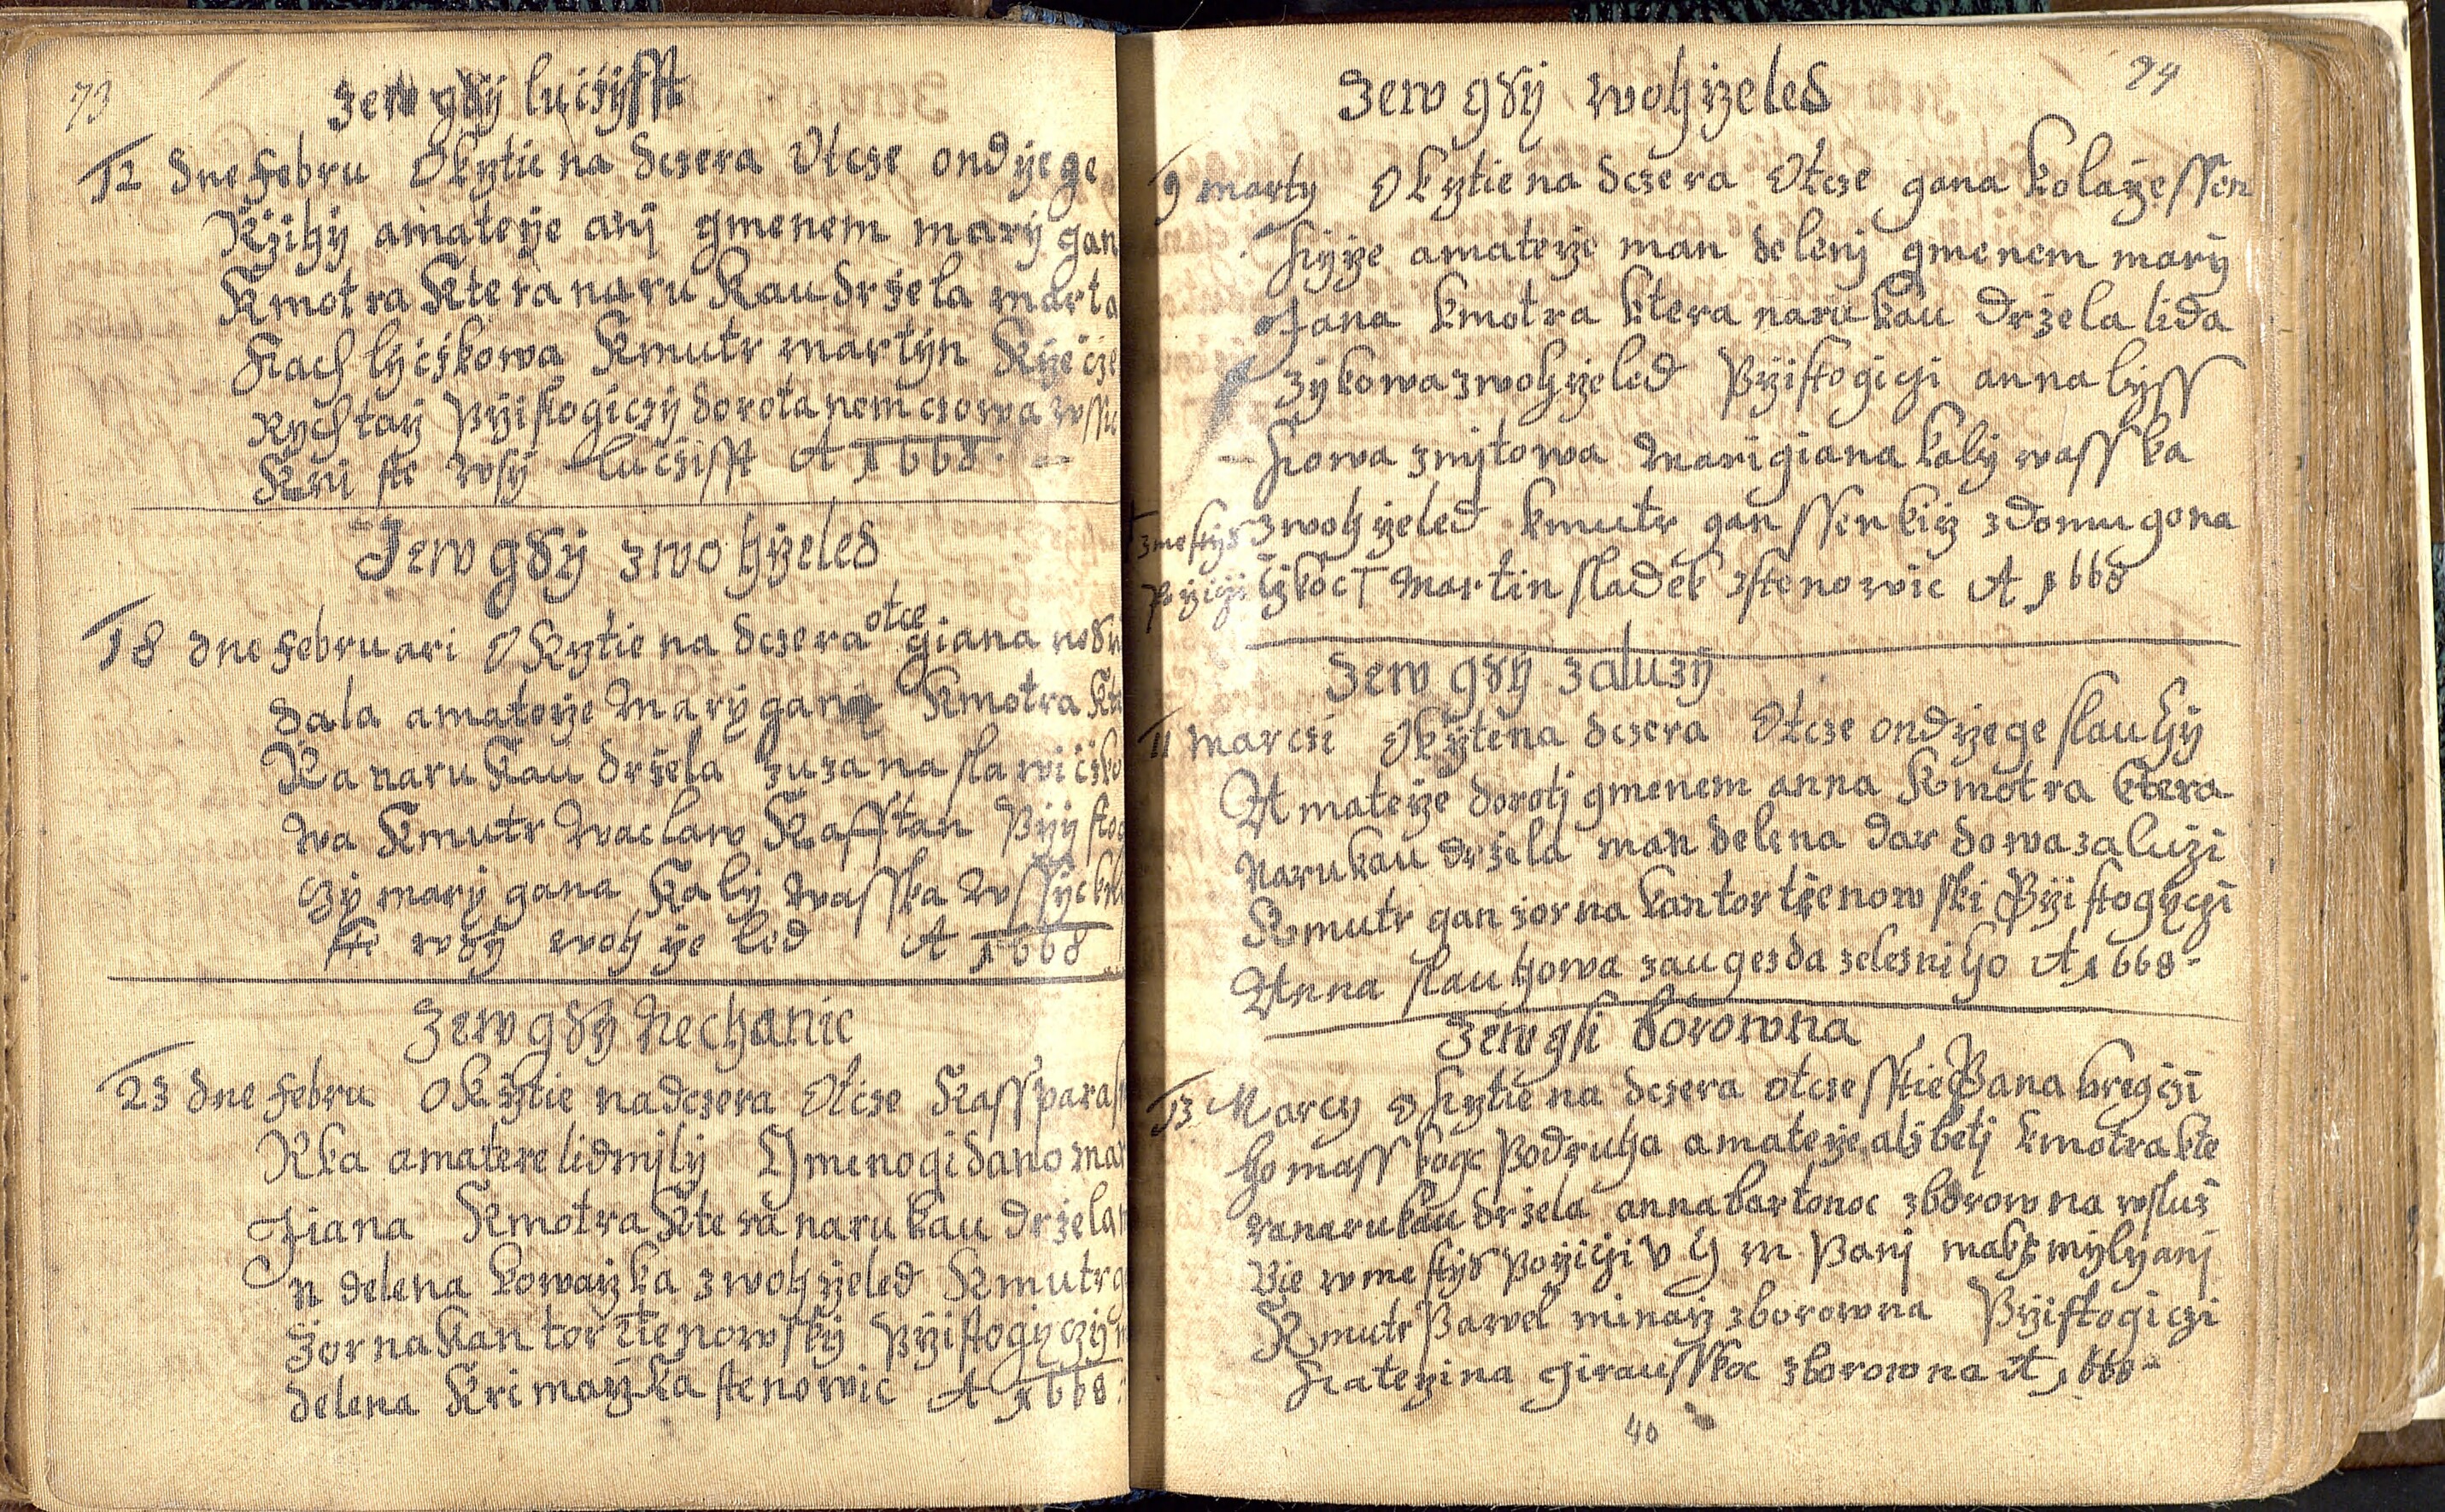 73
zew gdÿ lucżÿsst
12 dne febru Okrztie na dczera Otcze ondrzege
Krzihÿ amaterze anj gmenem marÿ gan
Kmotra Ktera naru Kau držela marta
Hach lÿczkowa Kmutr martÿn
Rÿchtarz Przistogiczÿ dorota nemczowa wssi
Kni ste wsÿ lucżisst A 1668
Zew gdÿ zwohrzeled
18 dne februari Okrztie na dczera otce giana nedw
dala amaterze Marÿ gang Kmotra Kte
Ra naru Kau držela zuzana slawiczko
wa Kmutr Waclaw Kafftan Przÿ stog
czÿ marÿ gana Kalÿ wasska wssÿckni
ste wdÿ wohrze led A 1668
Zew gdÿ Nechanic
23 dne febru Okrztie nadczera Otcze Kassparass
Kka amatere lidmilÿ Gmenogi dano mar
Jiana Kmotra Ktera naru kau držela m
n delena kowarzka zwohrzeled Kmutr g
žorna kan tor tienowskÿ Przistogÿczÿ m
delena Krimarzka stenowic A 1668
74
Zew gdÿ wohrzeled
9 marty Okrztie na dczera Otcze gana kolarze ssen
hÿrze amaterze man delenj gmenem marÿ
Jana kmotra ktera naru kau držela lida
zÿkowa zwohrzeled Przistogiczi anna lÿss
kowa zmÿtowa marigiana kalÿ wasska
zwohrzeled kmutr gan ssen kirz zdomu gona
zmestÿs
Martin sladek zstenowic A 1668
Zew gdÿ zaluzÿ
11 marczi Okrztena dczera Otcze ondrzege slauhÿ
A materze dorotj gmenem anna Kmotra ktera
naru kau držela man delena dar dowa zaluzi
Kmutr gan žorna kantor tienowski Przistogÿczi
Anna slauhowa zaugezda zelezniho A 1668
Zew gsi borowna
13 Marcy Okrztie na dczera otcze sstie Pana kregczi
ho masskoge Podruha amaterze alžbetj kmotra kte
ra naru kau držela anna bartonoc zborowna wsluž
bie wmestÿs Porziczi v G m Panj maksmÿlÿanj
Kmutr Pawel minarz zborowna Przistogiczi
Katerzina girausskoc zborowna A 1668
40